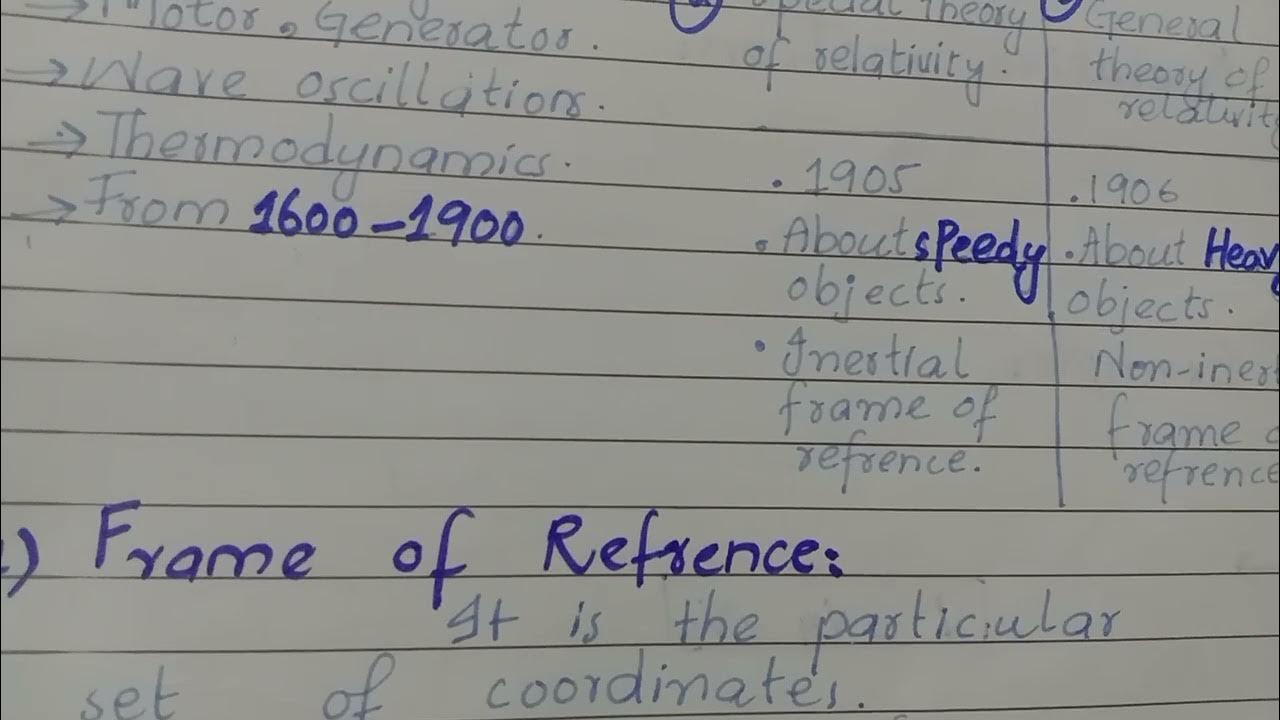 → Motor, Generator.
→ Wave oscillations.
→ Thermodynamics.
→ From 1600-1900.
Special Theory
of relativity.
. 1905
. About speedy
objects.
. Inertial
frame of
refrence.
General
theory of
relativity
. 1906
. About Heav
objects.
Non-iner
frame o
refrence
) Frame of Refrence:
It is the particular
set of coordinates.